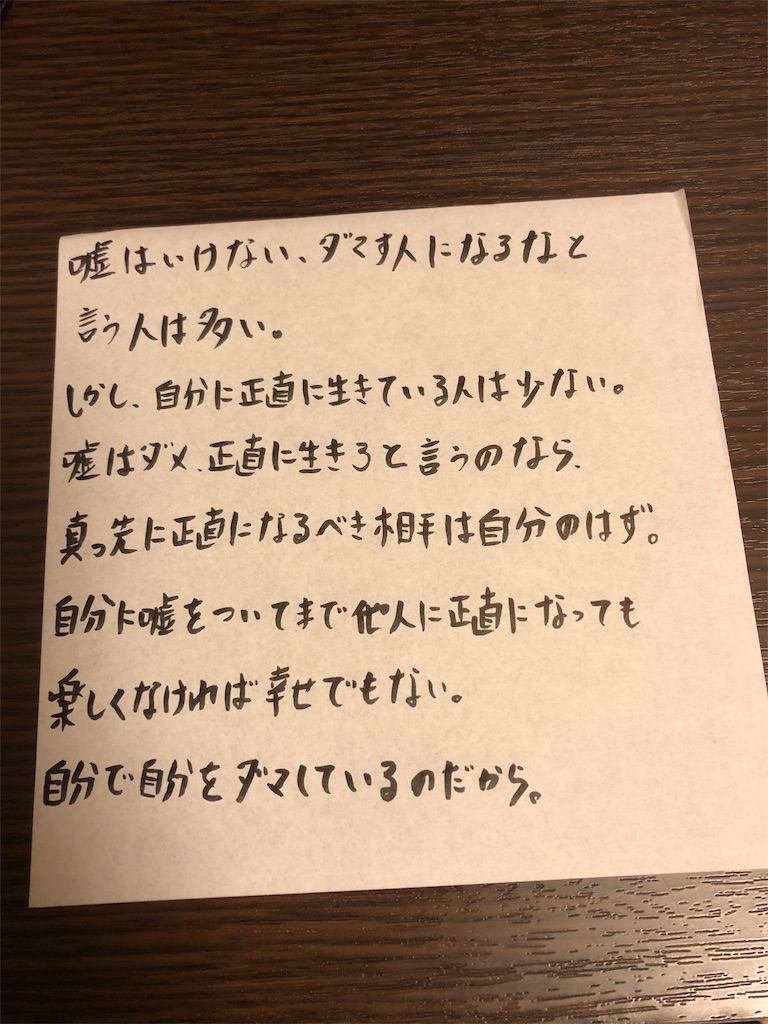 嘘はいけない、ダマす人になるなと
言う人は多い。
しかし、自分に正直に生きている人は少ない。
嘘はダメ、正直に生きろと言うのなら、
真っ先に正直になるべき相手は自分のはず。
自分に嘘をついてまで他人に正直になっても
楽しくなければ幸せでもない。
自分で自分をダマしているのだから。